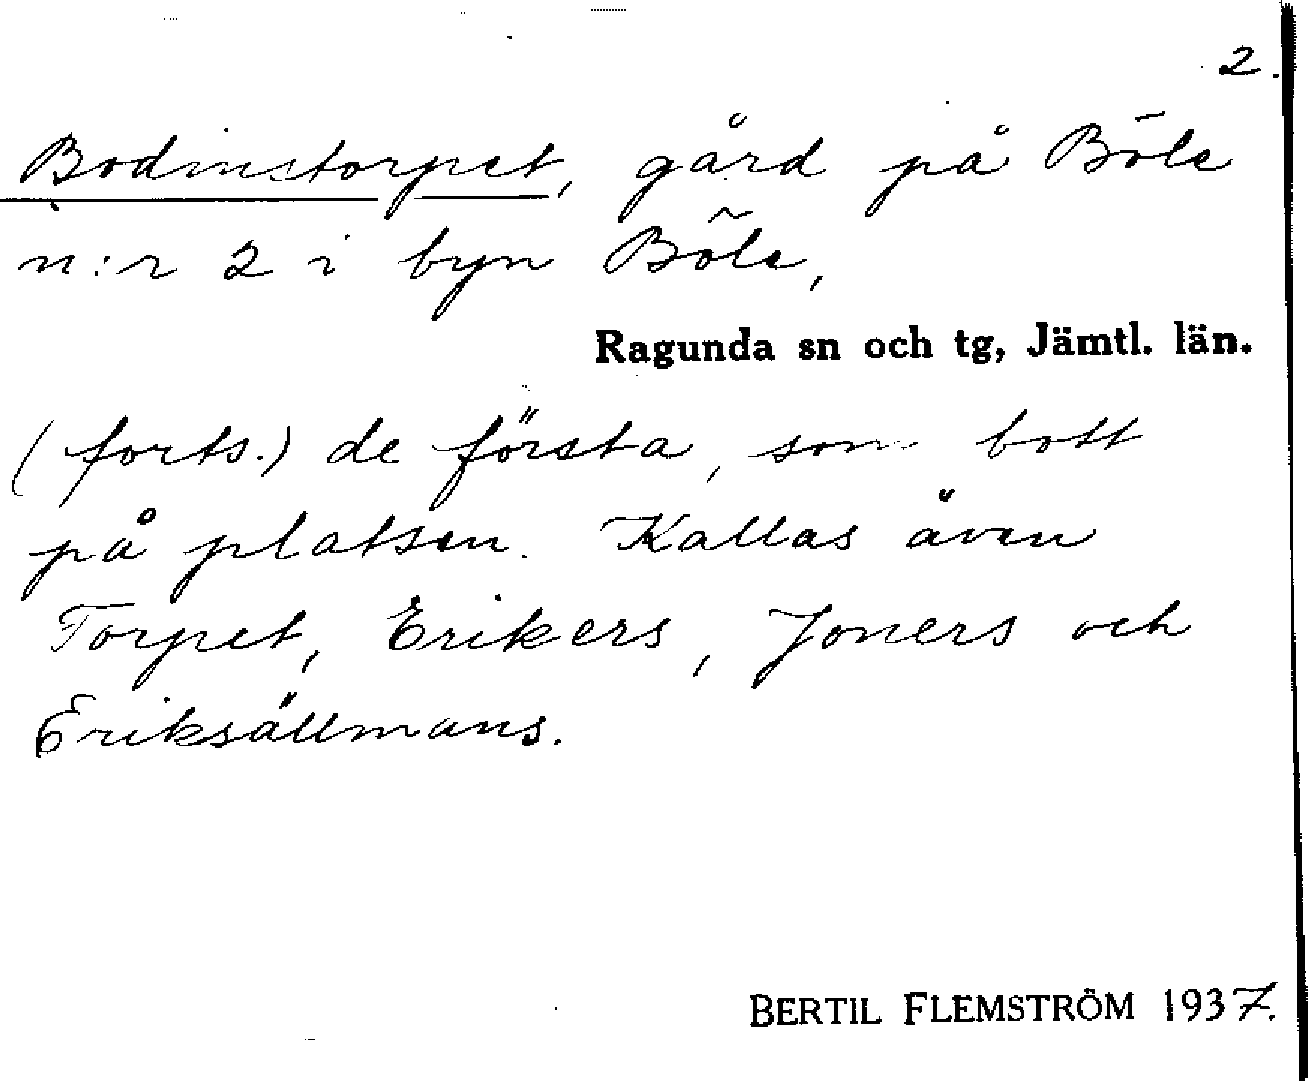 2.
Bodinstorpet, gård på Böle
n:r 2 i byn Böle,
Ragunda sn och tg, Jämtl. län.
(forts.) de första, som bott
på platsen. Kallas även
Torpet, Erikers, Joners och
Eriksällmans.
BERTIL FLEMSTRÖM 1937.